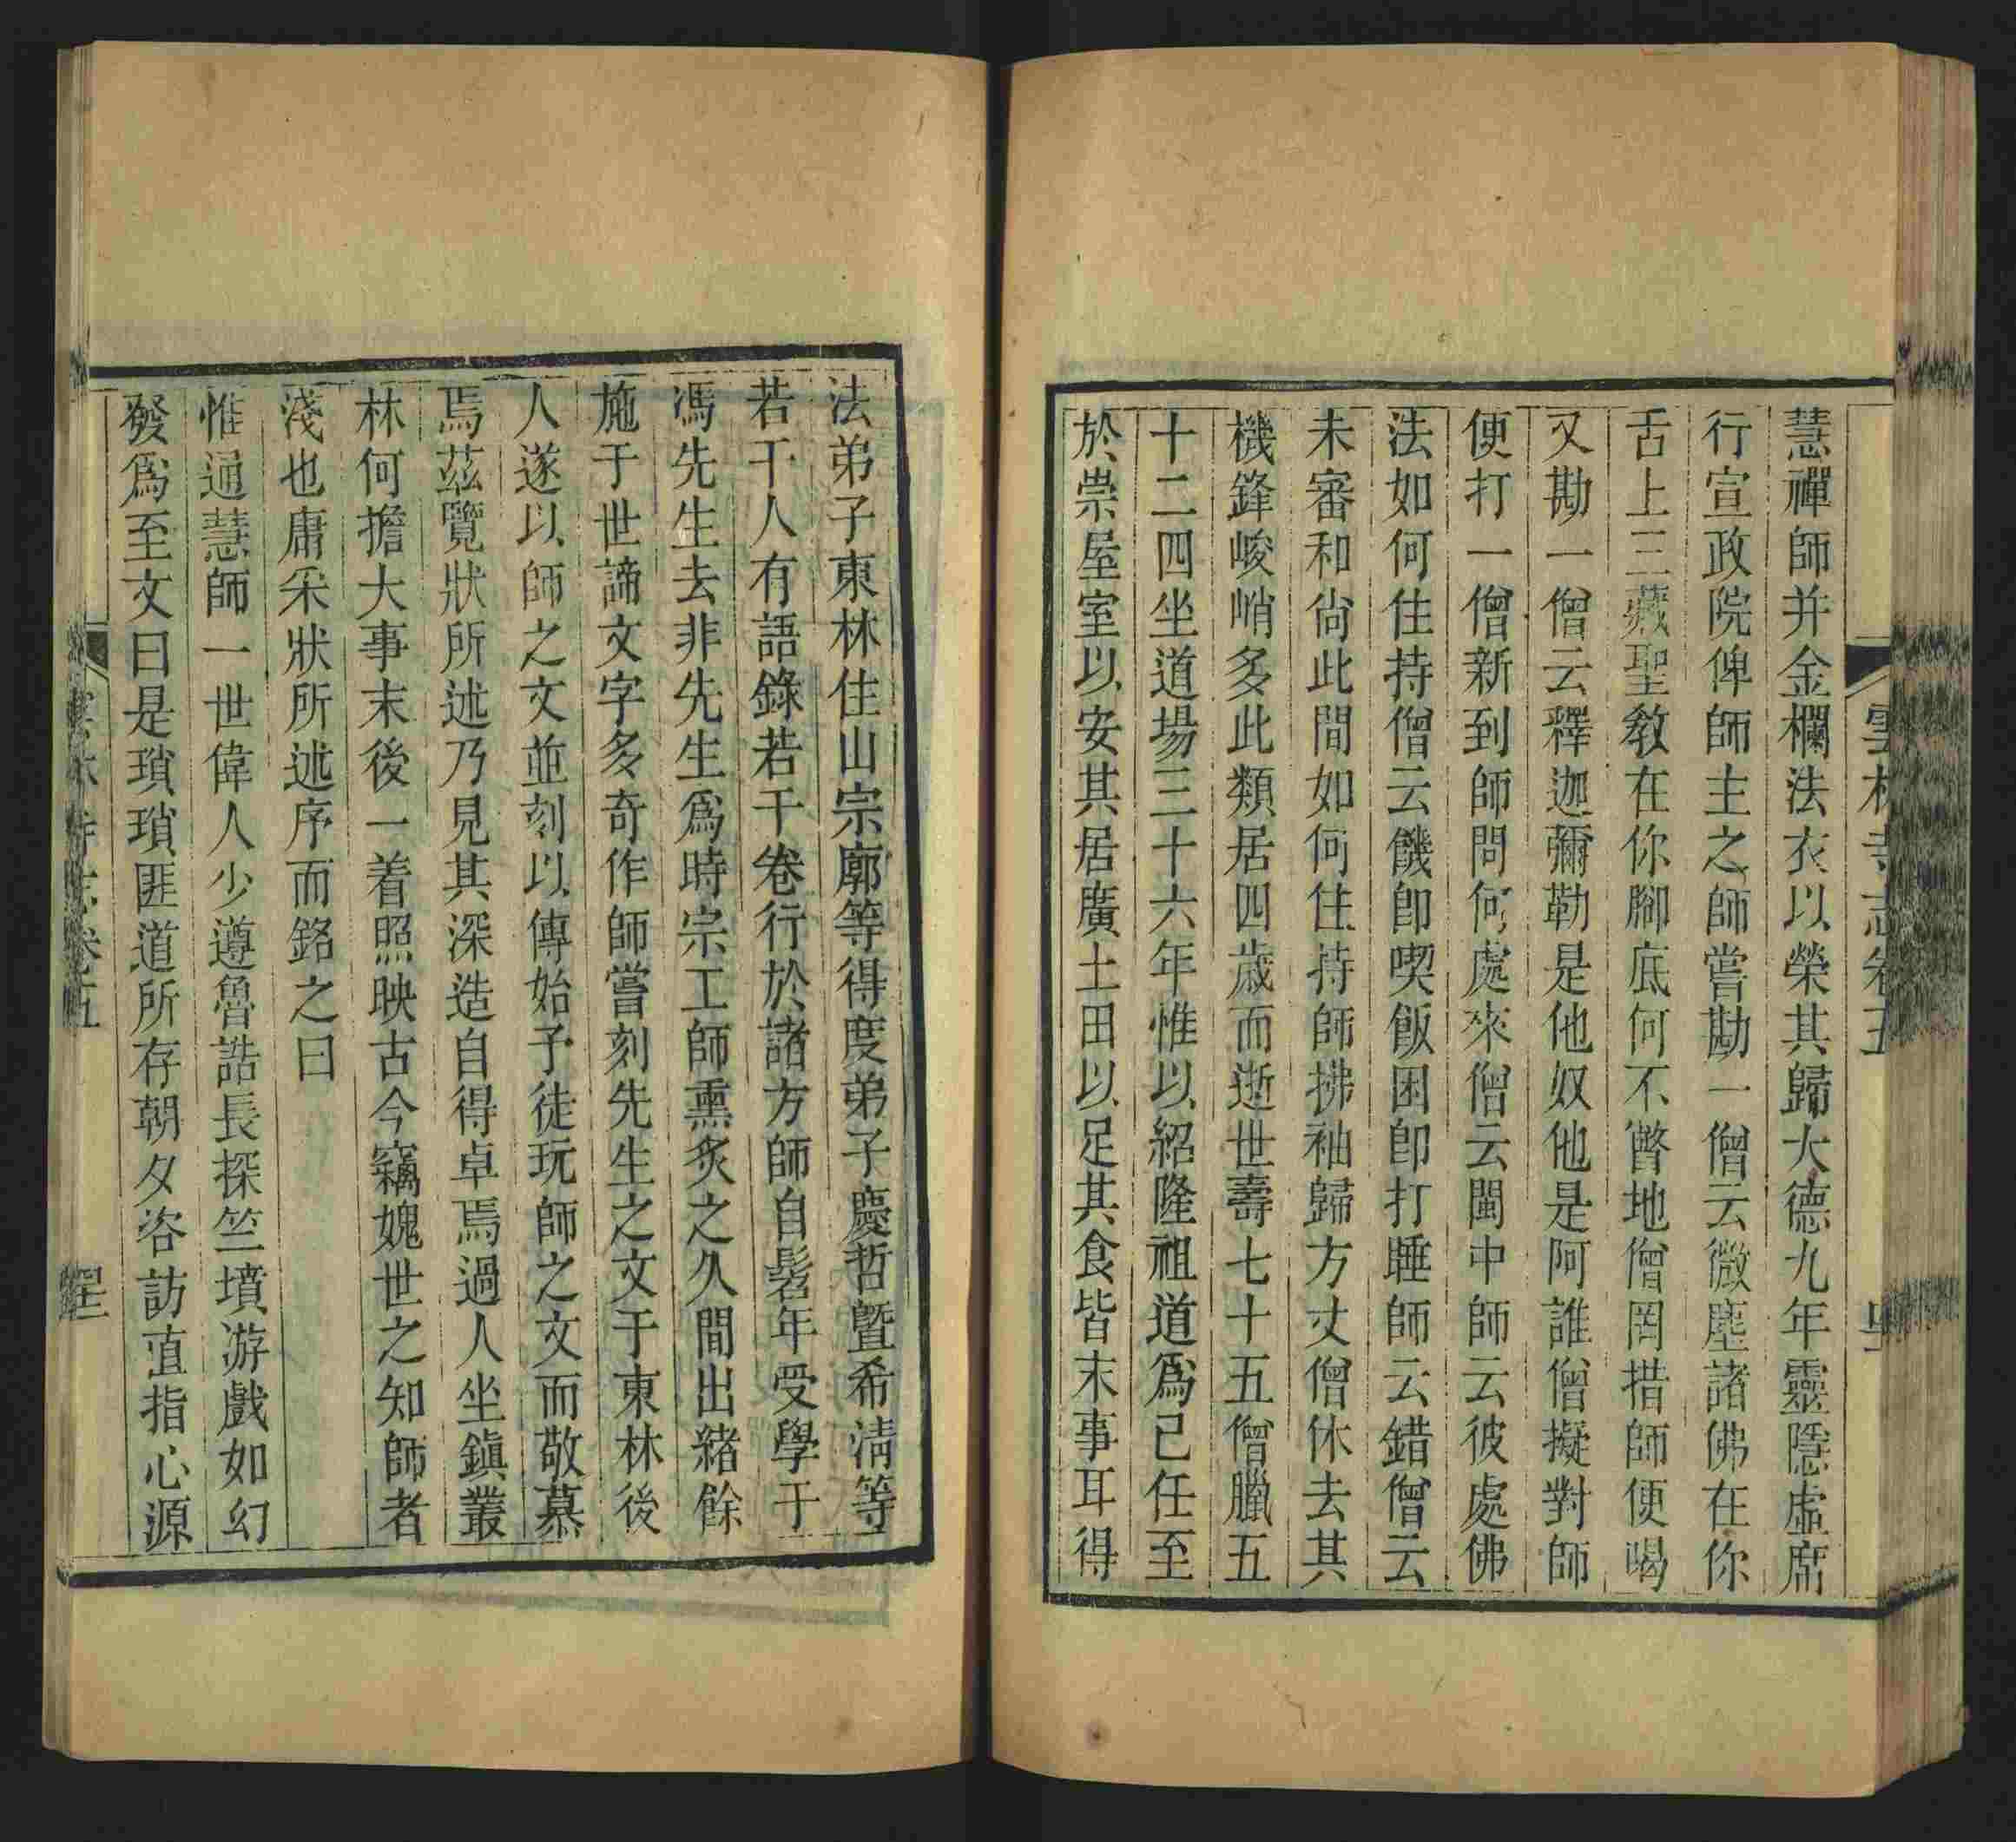 雲林寺志卷五
慧禪師并金襴法衣以榮其歸大德九年靈隱虛席
行宣政院俾師主之師嘗勘一僧云微塵諸佛在你
舌上三藏聖教在你腳底何不瞥地僧罔措師便喝
又勘一僧云釋迦彌勒是他奴他是阿誰僧擬對師
便打一僧新到師問何處來僧云閩中師云彼處佛
法如何住持僧云饑卽喫飯困卽打睡師云錯僧云
未審和尙此間如何住持師拂袖歸方丈僧休去其
機鋒峻峭多此類居四歲而逝世壽七十五僧臘五
十二四坐道場三十六年惟以紹隆祖道爲己任至
於崇屋室以安其居廣土田以足其食皆末事耳得
法弟子東林住山宗廓等得度弟子慶哲曁希淸等
若干人有語錄若干卷行於諸方師自髫年受學于
馮先生去非先生爲時宗工師熏炙之久間出緖餘
施于世諦文字多奇作師嘗刻先生之文于東林後
人遂以師之文並刻以傳始予徒玩師之文而敬慕
焉茲覽狀所述乃見其深造自得卓焉過人坐鎭叢
林何擔大事末後一着照映古今竊媿世之知師者
淺也庸采狀所述序而銘之曰
惟通慧師一世偉人少遵魯誥長探竺墳游戲如幻
發爲至文曰是瑣瑣匪道所存朝夕咨訪直指心源
雲林寺志卷五